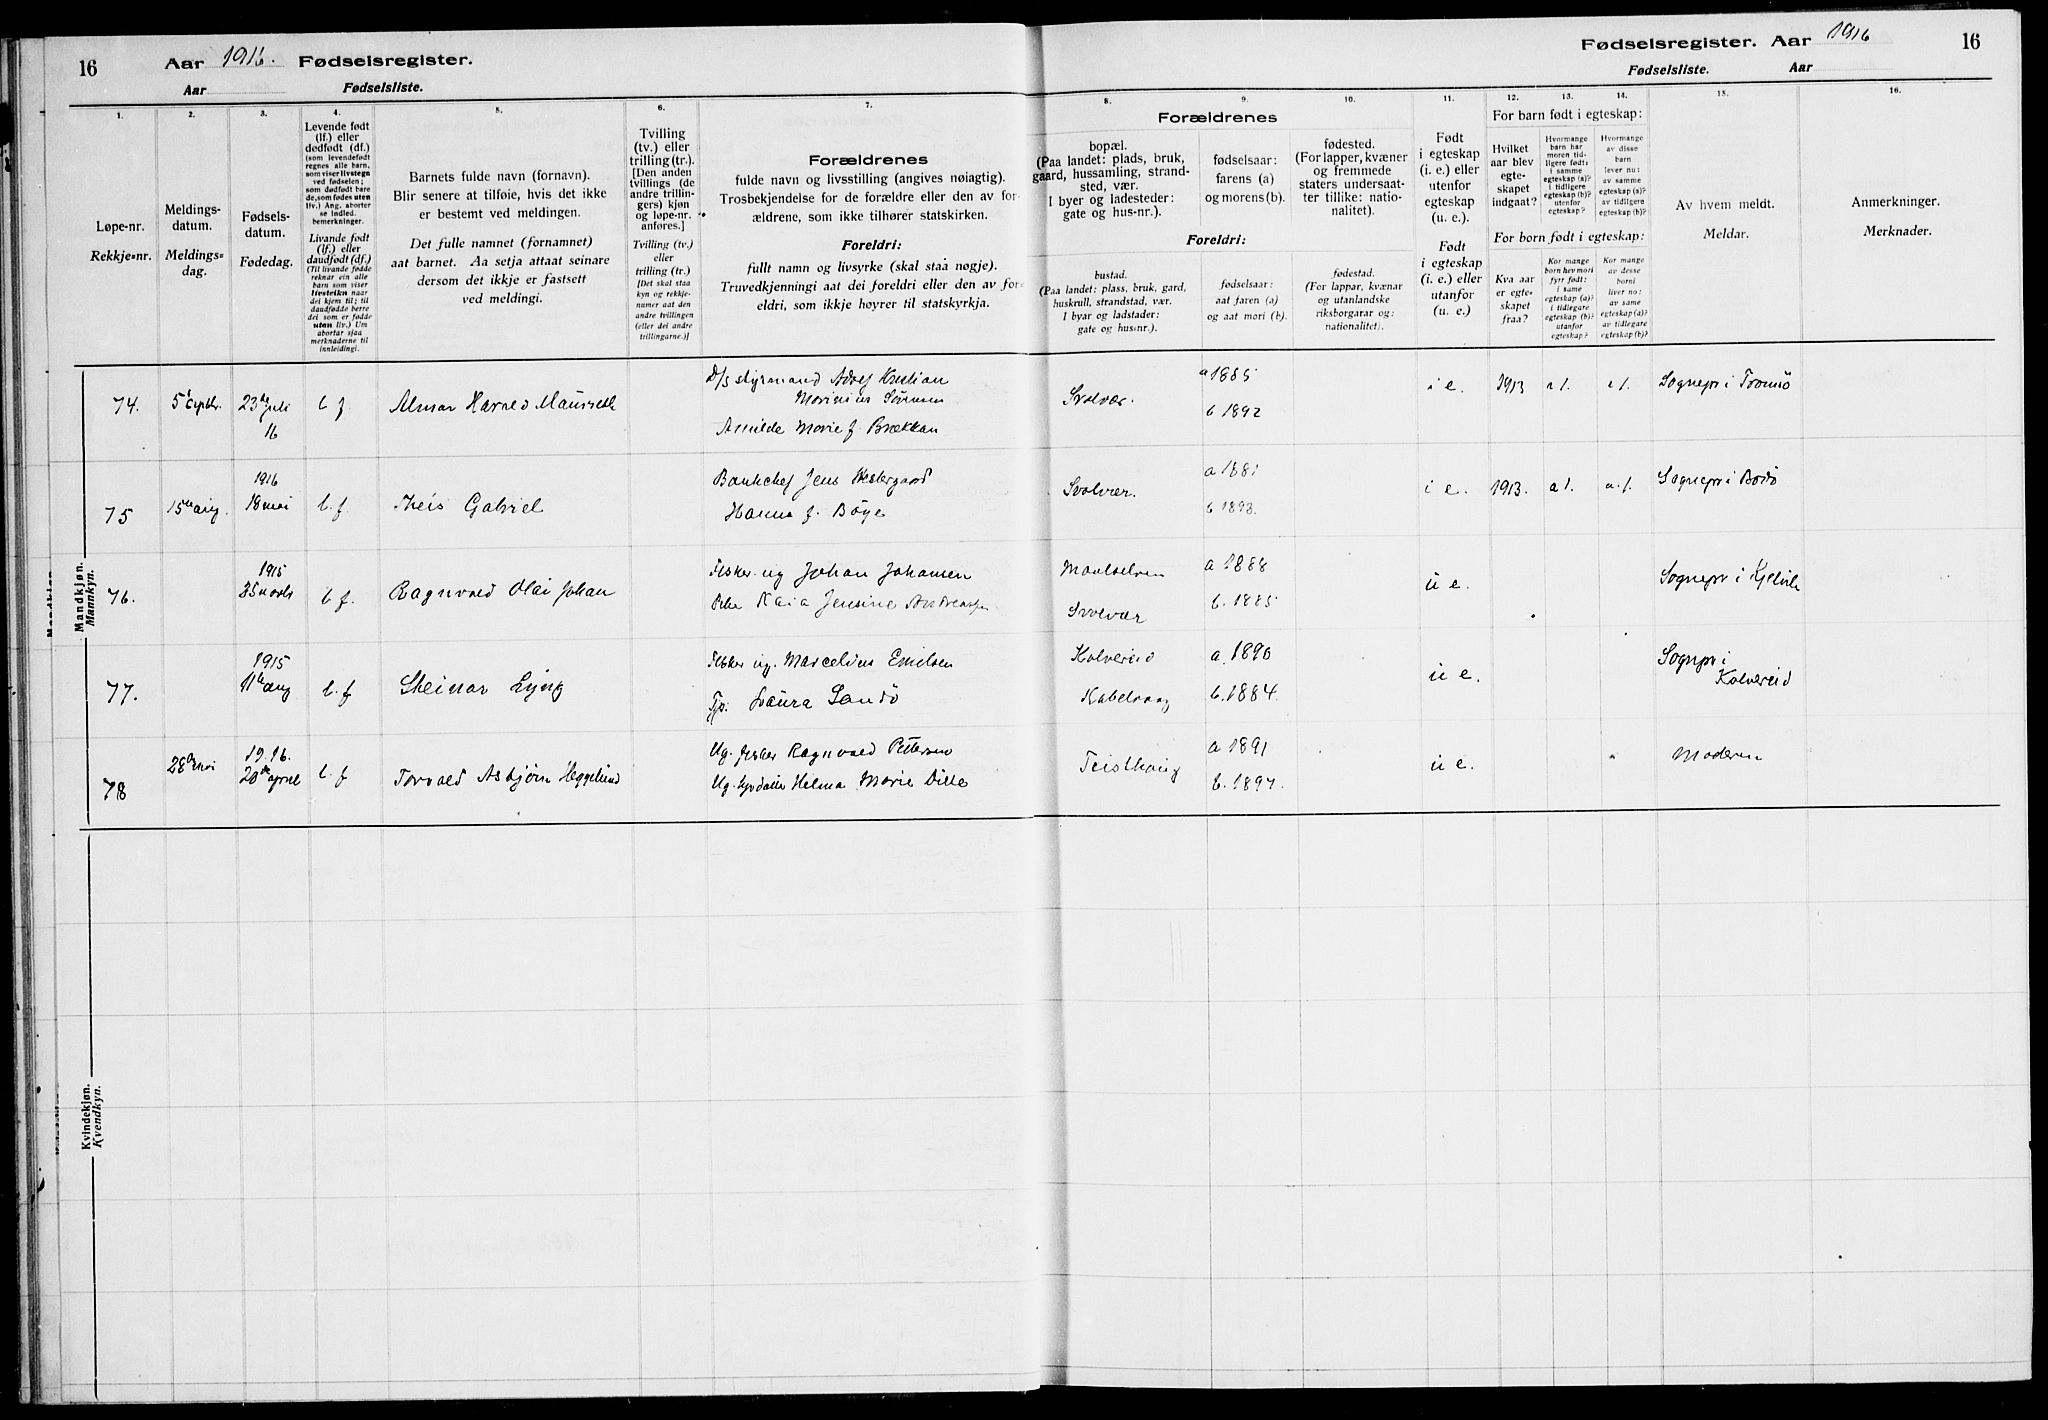 16 Aar 1916. Fødselsregister.
Aar Fødselsliste.
Fødselsregister. Aar 1916 16
Fødselsliste. Aar
1.
Løpe-nr.
Rekkje-nr.
2.
Meldings-
datum.
Meldings-
dag.
3.
Fødsels-
datum.
Fødedag.
4.
Levende født
(lf.) eller
dødfødt (df.)
(som levendefødt
regnes alle barn,
som viser livstegn
ved fødselen;
som dødfødt bare
de, som fødes uten
liv.) Ang. aborter
se indled.
bemerkninger.
Livande født
(lf.) eller
daudfødt (df.)
(Til livande fødde
reknar ein alle
barn som viser
livsteikn naar
dei kjem til; til
daudfødde berre
dei som er fødde
utan liv.) Um
abortar sjaa
merknaderne til
innleidingi.
5.
Barnets fulde navn (fornavn).
Blir senere at tilføie, hvis det ikke
er bestemt ved meldingen.
Det fulle namnet (fornamnet)
aat barnet. Aa setja attaat seinare
dersom det ikkje er fastsett
ved meldingi.
6.
Tvilling
(tv.) eller
trilling (tr.).
[Den anden
tvillings (de
andre trillin-
gers) kjøn
og løpe-nr.
anføres.]
Tvilling (tv.)
eller
trilling (tr.)
[Det skal staa
kyn og rekkje-
numer aat den
andre tvillingen
(eller dei andre
trillingarne.)]
7.
Forældrenes
fulde navn og livsstilling (angives nøiagtig).
Trosbekjendelse for de forældre eller den av for-
ældrene, som ikke tilhører statskirken.
Foreldri:
fullt namn og livsyrke (skal staa nøgje).
Truvedkjenningi aat dei foreldri eller den av for-
eldri, som ikkje høyrer til statskyrkja.
Forældrenes
8.
bopæl.
(Paa landet: plads, bruk,
gaard, hussamling, strand-
sted, vær.
I byer og ladesteder:
gate og hus-nr.).
9.
fødselsaar:
farens (a)
og morens (b).
10.
fødested.
(For lapper, kvæner
og fremmede
staters undersaat-
ter tillike: natio-
nalitet).
Foreldri:
bustad.
(Paa landet: plass, bruk, gard,
huskrull, strandstad, vær.
I byar og ladstader:
gate og hus-nr.).
fødselsaar:
aat faren (a)
og aat mori (b).
fødestad.
(For lappar, kvænar
og utanlandske
riksborgarar og:
nationalitet).
11.
Født
i egteskap
(i. e.) eller
utenfor
egteskap
(u. e.).
Født
i egteskap
(i. e.) eller
utanfor
(u. e.)
For barn født i egteskap:
12.
Hvilket
aar blev
egte-
skapet
indgaat?
13.
Hvormange
barn har
moren tid-
ligere født:
i samme
egteskap (a)?
i tidligere
egteskap (b)?
utenfor
egteskap?
14.
Hvormange
av disse
barn
lever nu:
av samme
egteskap (a)?
av tidligere
egteskap (b)?
For born født i egteskap:
Kva aar
er egte-
skapet
fraa?
Kor mange
born hev mori
fyrr født:
i same
egteskap (a)?
i tidlegare
egteskap (b)?
utanfor
egteskap?
Kor mange
av desse
borni
liver no:
av same
egteskap (a)?
av tidlegare
egteskap (b)?
15.
Av hvem meldt.
Meldar.
16.
Anmerkninger.
Merknader.
Mandkjøn.
Mannkyn.
Kvindekjøn.
Kvendkyn.
74. 23de juli 16 l f. Almar Harald
D/s styrmand Adolf Kristian
Marinius Sørensen
Marie f. Brækkan
Svolvær. a 1885 b 1892 i e. 1913 a 1. a 1. Sognepr i Tromsø
75 15de aug. 1916 18 mai l. f. Theis Gabriel
Bankchef Jens Vestergaard
Hanna f. Bøge
Svolvær. a 1881 b 1893. i e. 1913. a 1. a. 1. Sognepr i Bodø
76. 1915 l. f. Ragnvald Olai Johan
Fisker ug Johan Johansen
Pike Kaia Jensine
Maalselven a 1888
Svolvær b. 1885
u e. Sognepr i Kjelvik
77. 1915 11te aug l. f Steinar Lyng
Fisker ug. Marcelius Emilsen
Tjp. Laura Sandø
Kolvereid a. 1890
Kabelvaag b. 1884.
u e. Sognepr i
Kolvereid
78 28de mai 1916. 20de april l. f Torvald Asbjørn Heggelund
Ug. fisker Ragnvald Pettersen
Ug. Helma Marie Dille
a 1891
b. 1897.
u e. Moderen